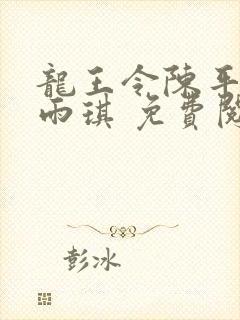 龍王令陳平
雨琪 免費閱
彭冰